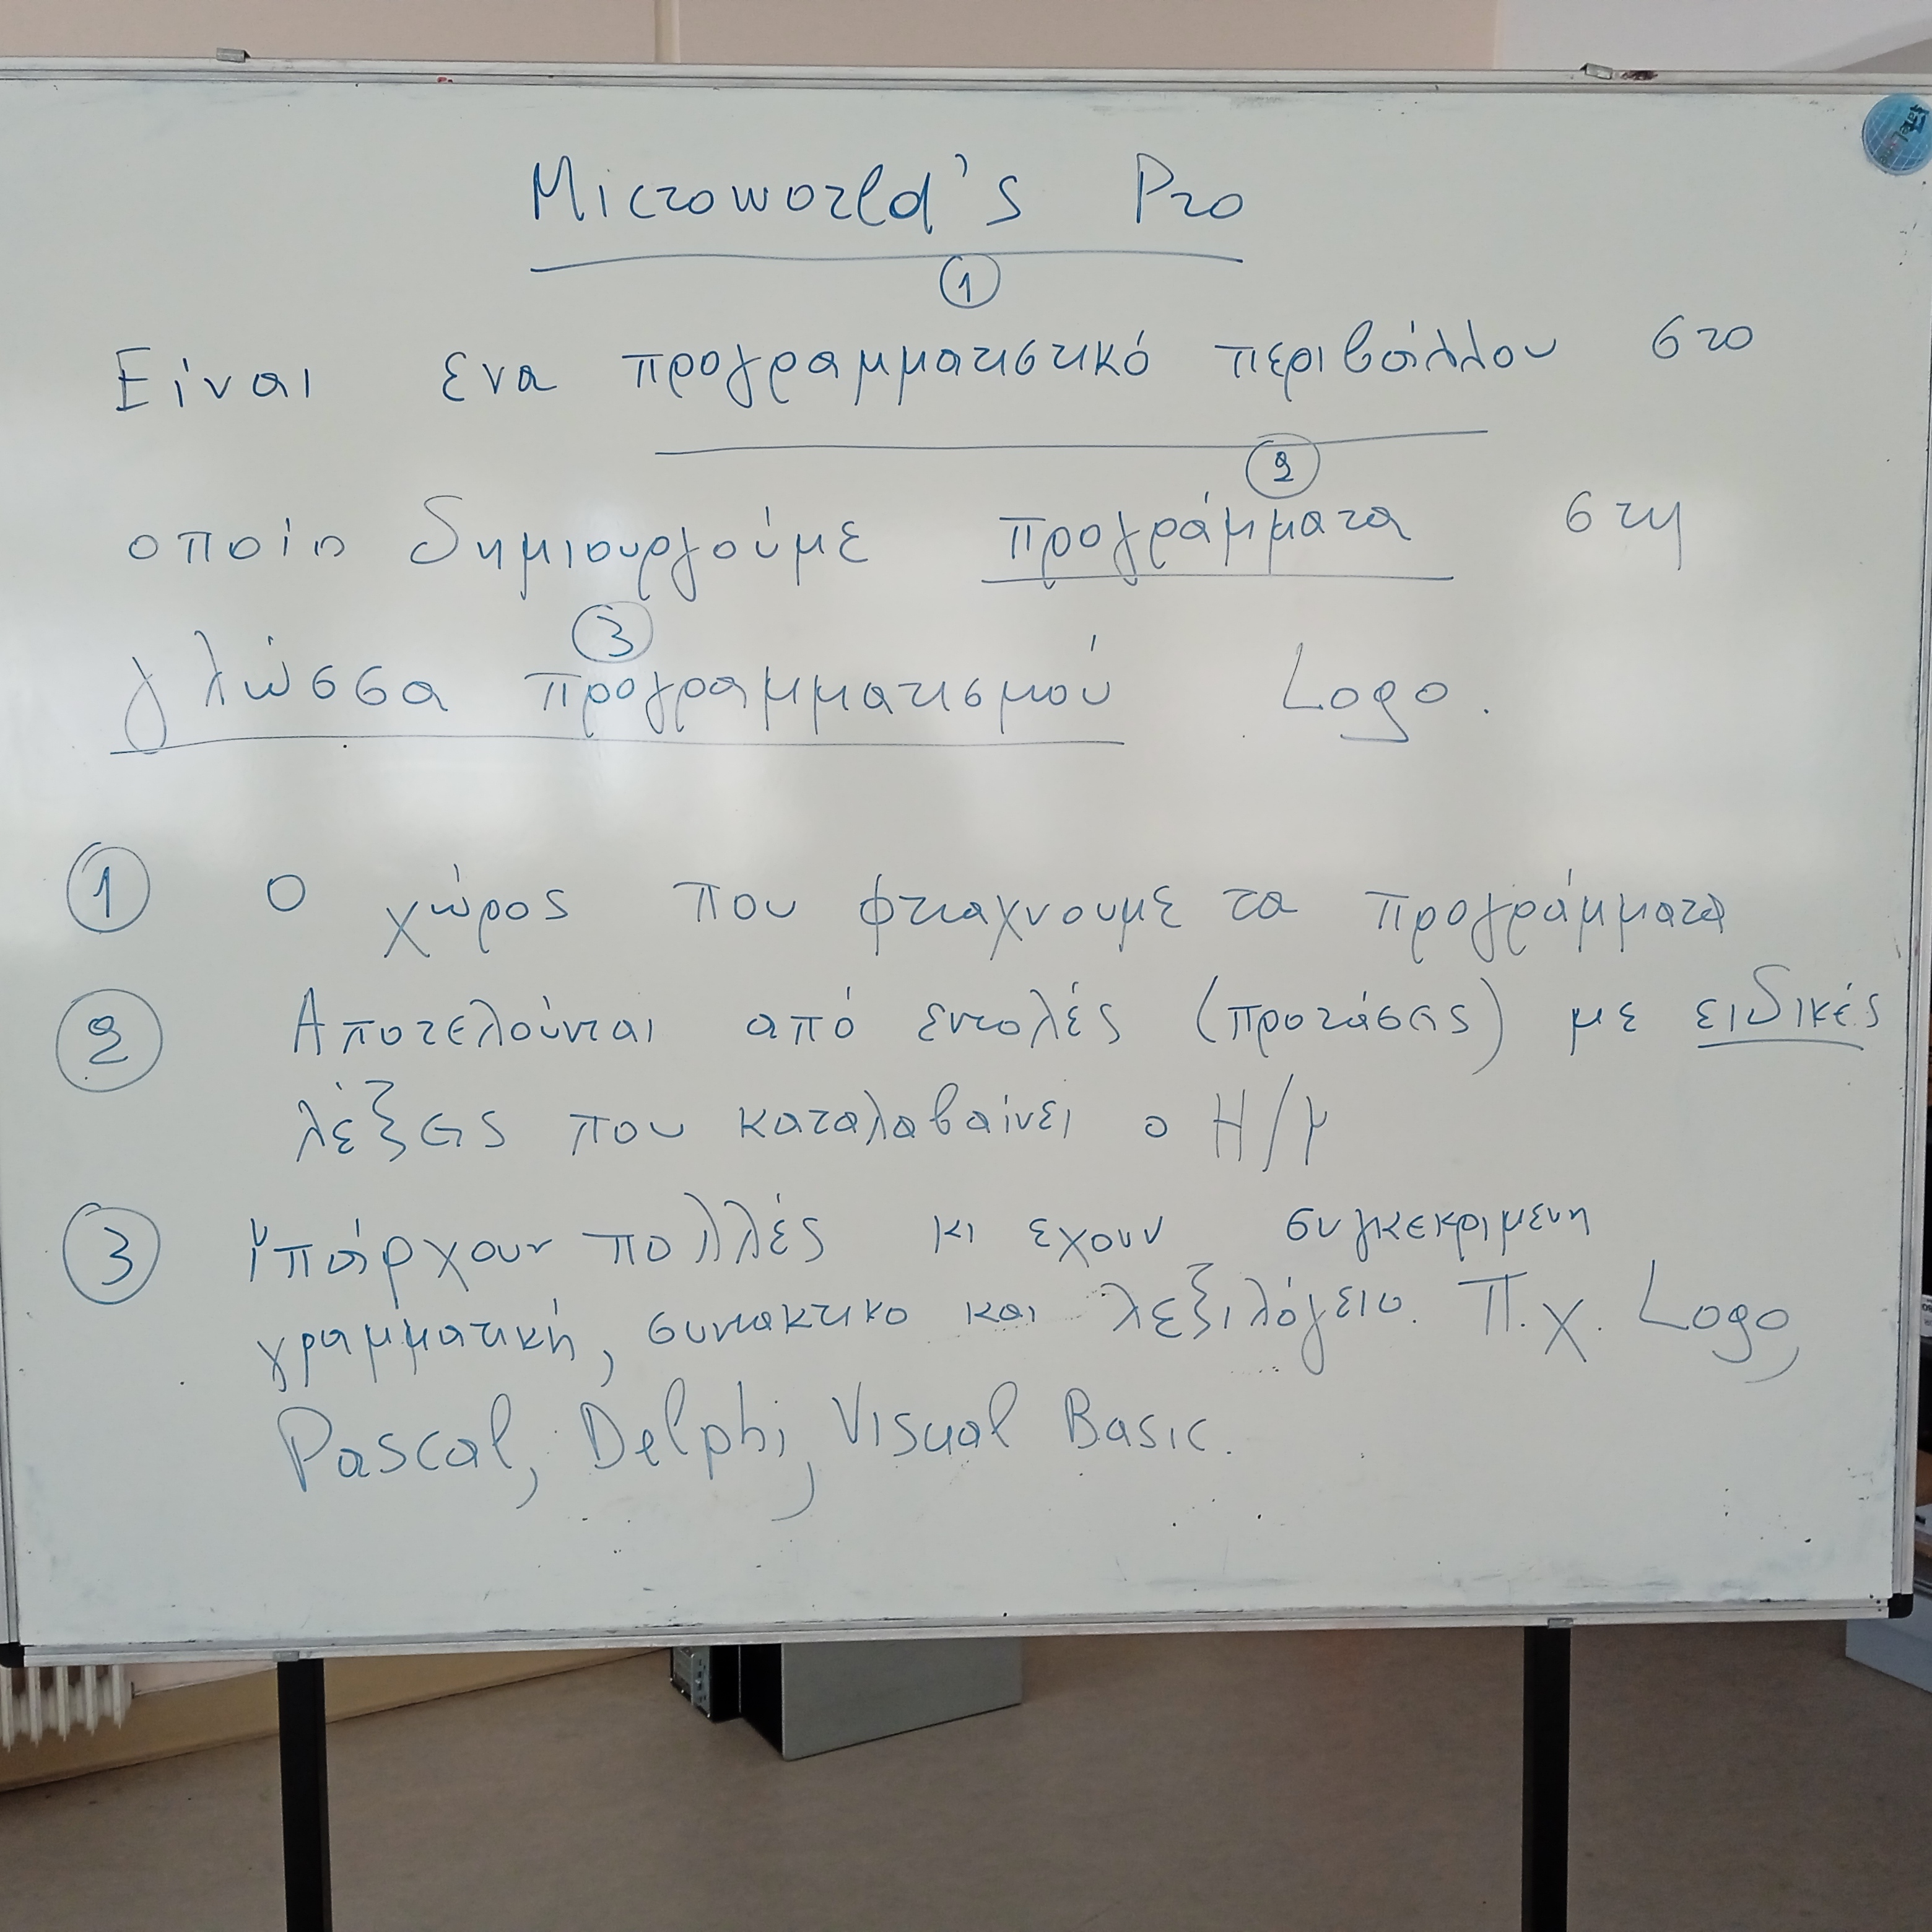 Microworld's Pro
①
Είναι ένα προγραμματιστικό περιβάλλον στο
②
οποίο δημιουργούμε προγράμματα στη
③
γλώσσα προγραμματισμού Logo.
① Ο χώρος που φτιαχνουμε τα προγράμματα
② Αποτελούνται από εντολές (προτάσεις) με ειδικές
λέξεις που καταλαβαίνει ο Η/Υ
③ Υπάρχουν πολλές κι εχουν συγκεκριμενη
γραμματική, συντακτικο και λεξιλόγειο. Π.χ. Logo,
Pascal, Delphi, Visual Basic.